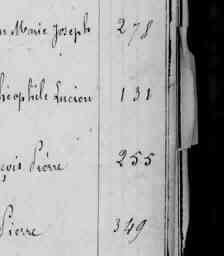 Marie Joseph 278
Théophile Lucien 131
Pierre 255
Pierre 349